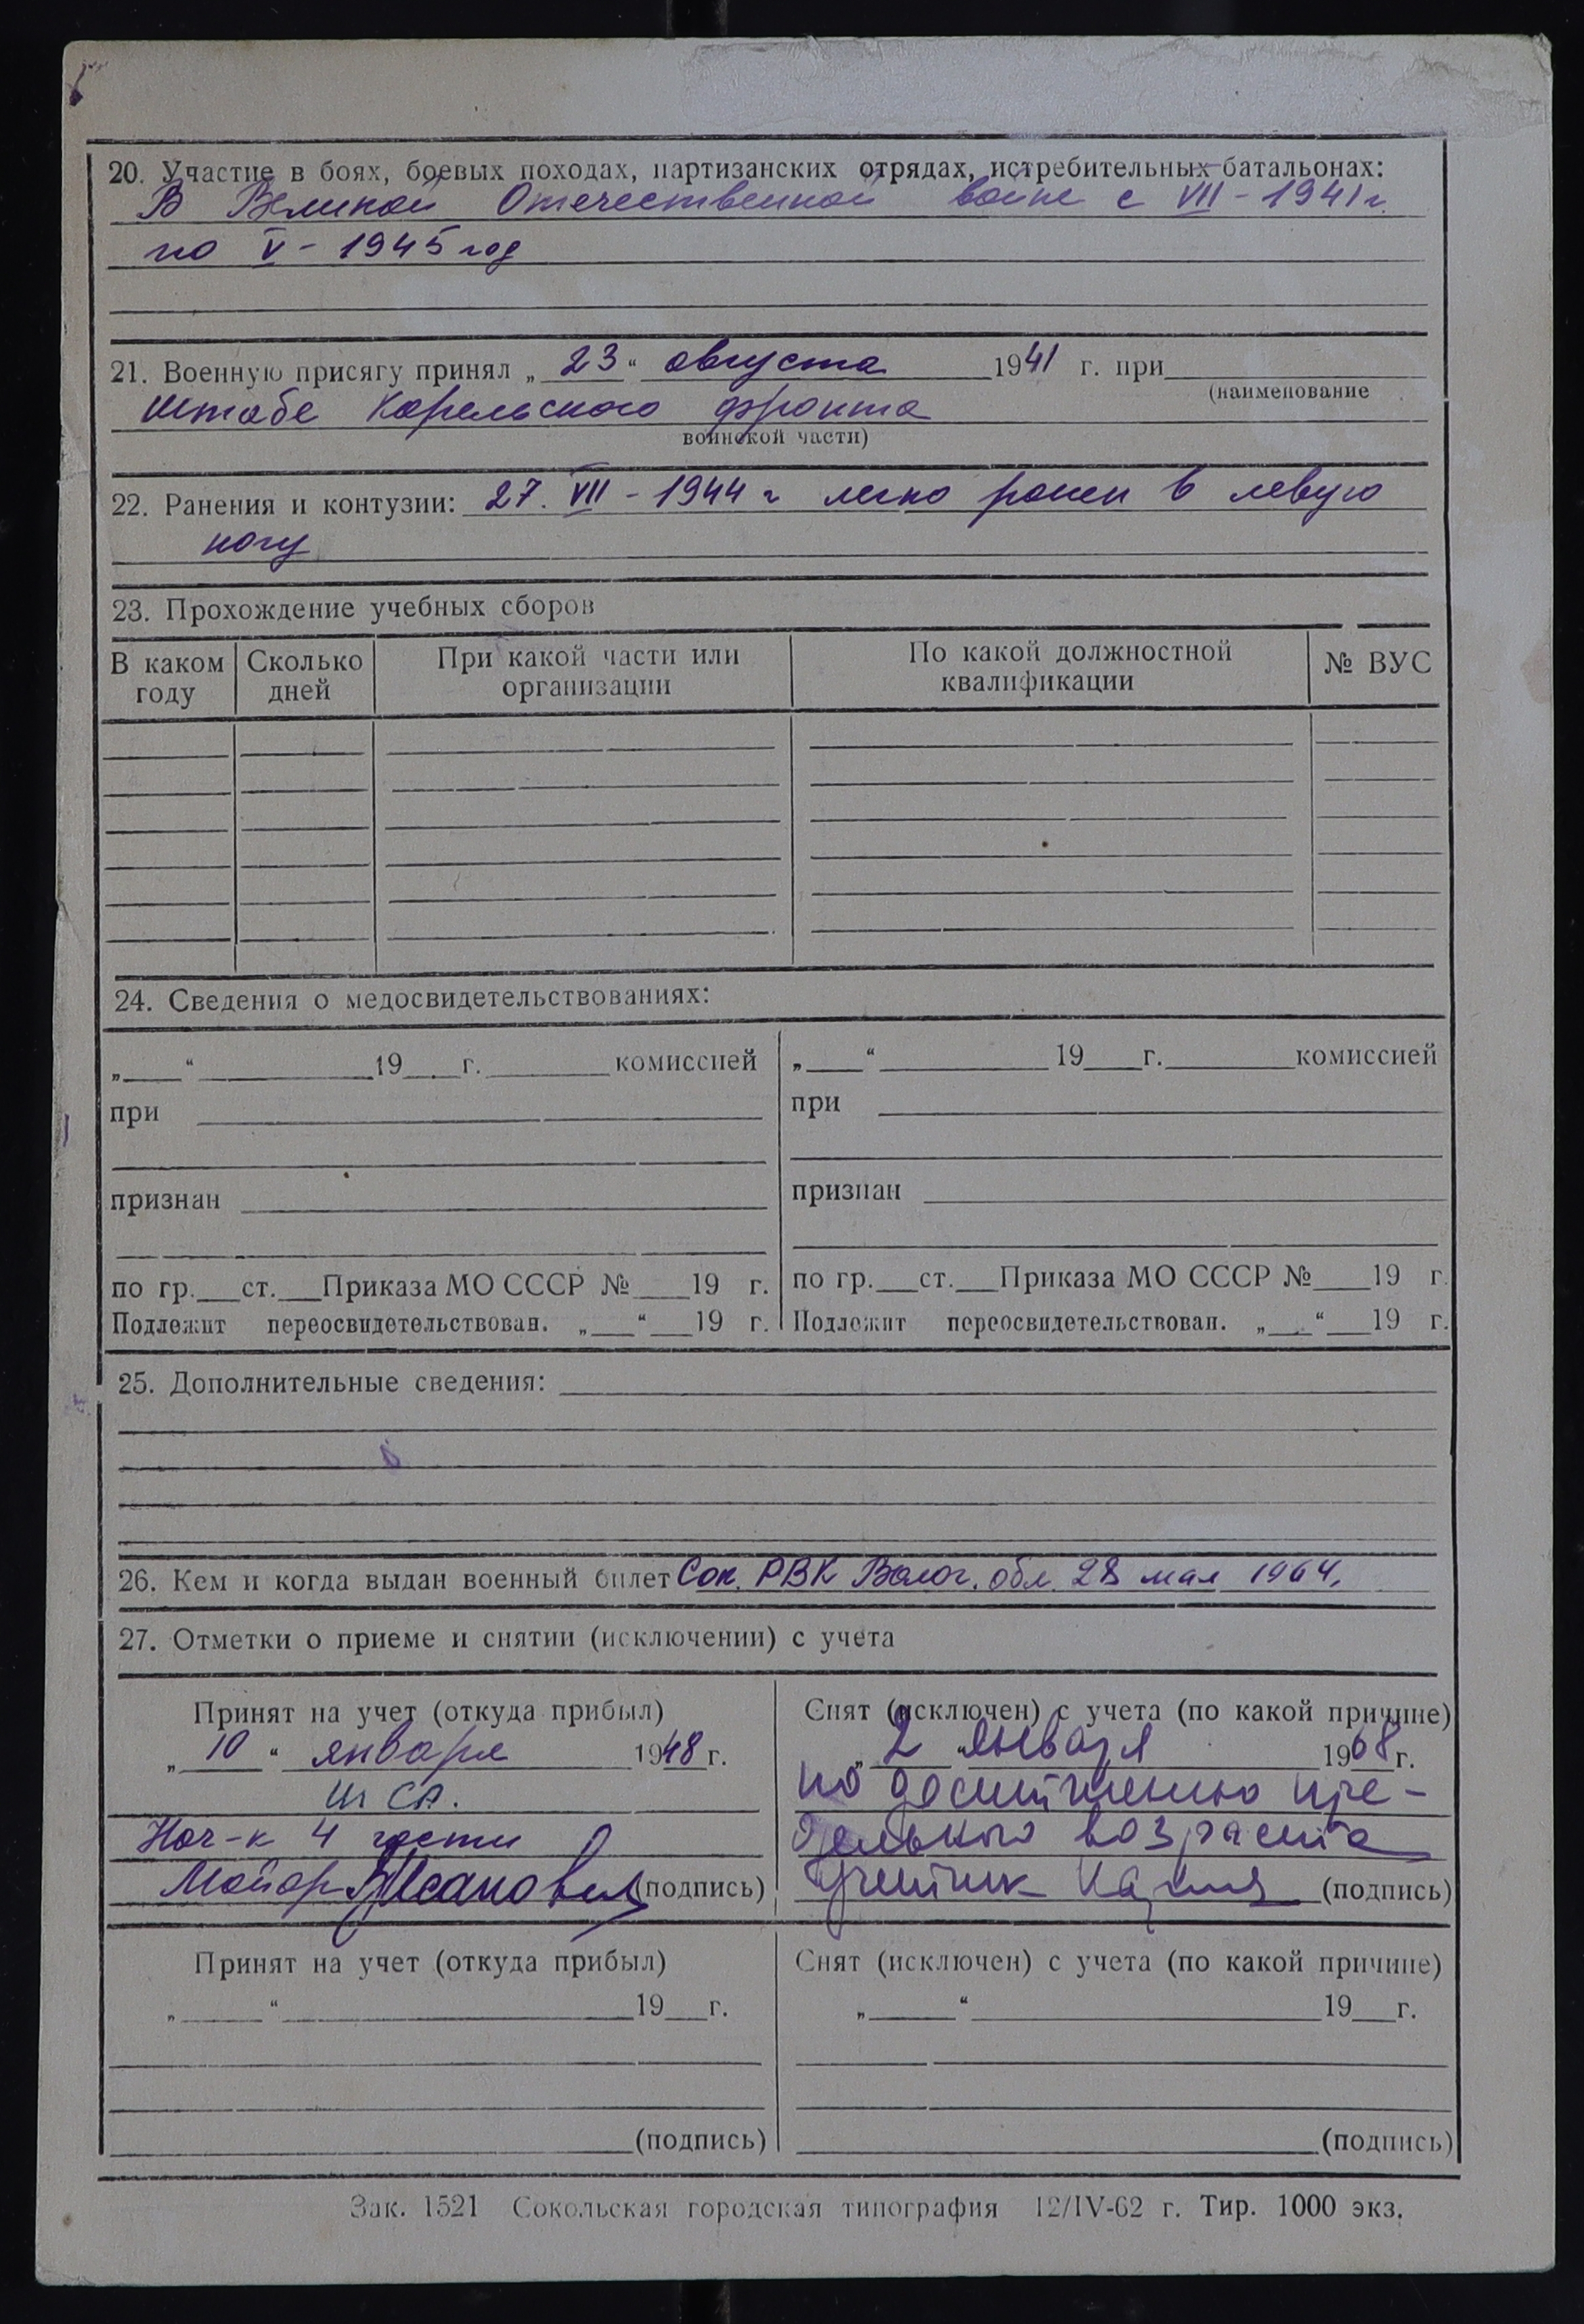 20. Участие в боях, боевых походах, партизанских отрядах, истребительных батальонах:
В Великой Отечественной войне с VII - 1941 г.
по V - 1945 год
21. Военную присягу принял „ 23 “ августа 1941 г. при
(наименование
Штабе Карельского фронта
воинской части)
22. Ранения и контузии: 27. VII - 1944 г легко ранен в левую
ногу
23. Прохождение учебных сборов
В каком году | Сколько дней | При какой части или организации | По какой должностной квалификации | № ВУС
24. Сведения о медосвидетельствованиях:
„___“ ___ 19___г. ___ комиссией
при
признан
по гр.___ст.___Приказа МО СССР №___19 г.
Подлежит переосвидетельствован. „___“___19 г.
„___“ ___ 19___г. ___ комиссией
при
признан
по гр.___ст.___Приказа МО СССР №___19 г.
Подлежит переосвидетельствован. „___“___19 г.
25. Дополнительные сведения:
26. Кем и когда выдан военный билет Сок. РВК Волог. обл. 28 мая 1964.
27. Отметки о приеме и снятии (исключении) с учета
Принят на учет (откуда прибыл)
„ 10 “ января 1948 г.
из СА.
Нач-к 4 части
Майор (подпись)
Снят (исключен) с учета (по какой причине)
„ 2 “ января 1968 г.
по достижению пре-
дельного возраста
(подпись)
Принят на учет (откуда прибыл)
„___“ ___ 19___г.
(подпись)
Снят (исключен) с учета (по какой причине)
„___“ ___ 19___г.
(подпись)
Зак. 1521 Сокольская городская типография 12/IV-62 г. Тир. 1000 экз.